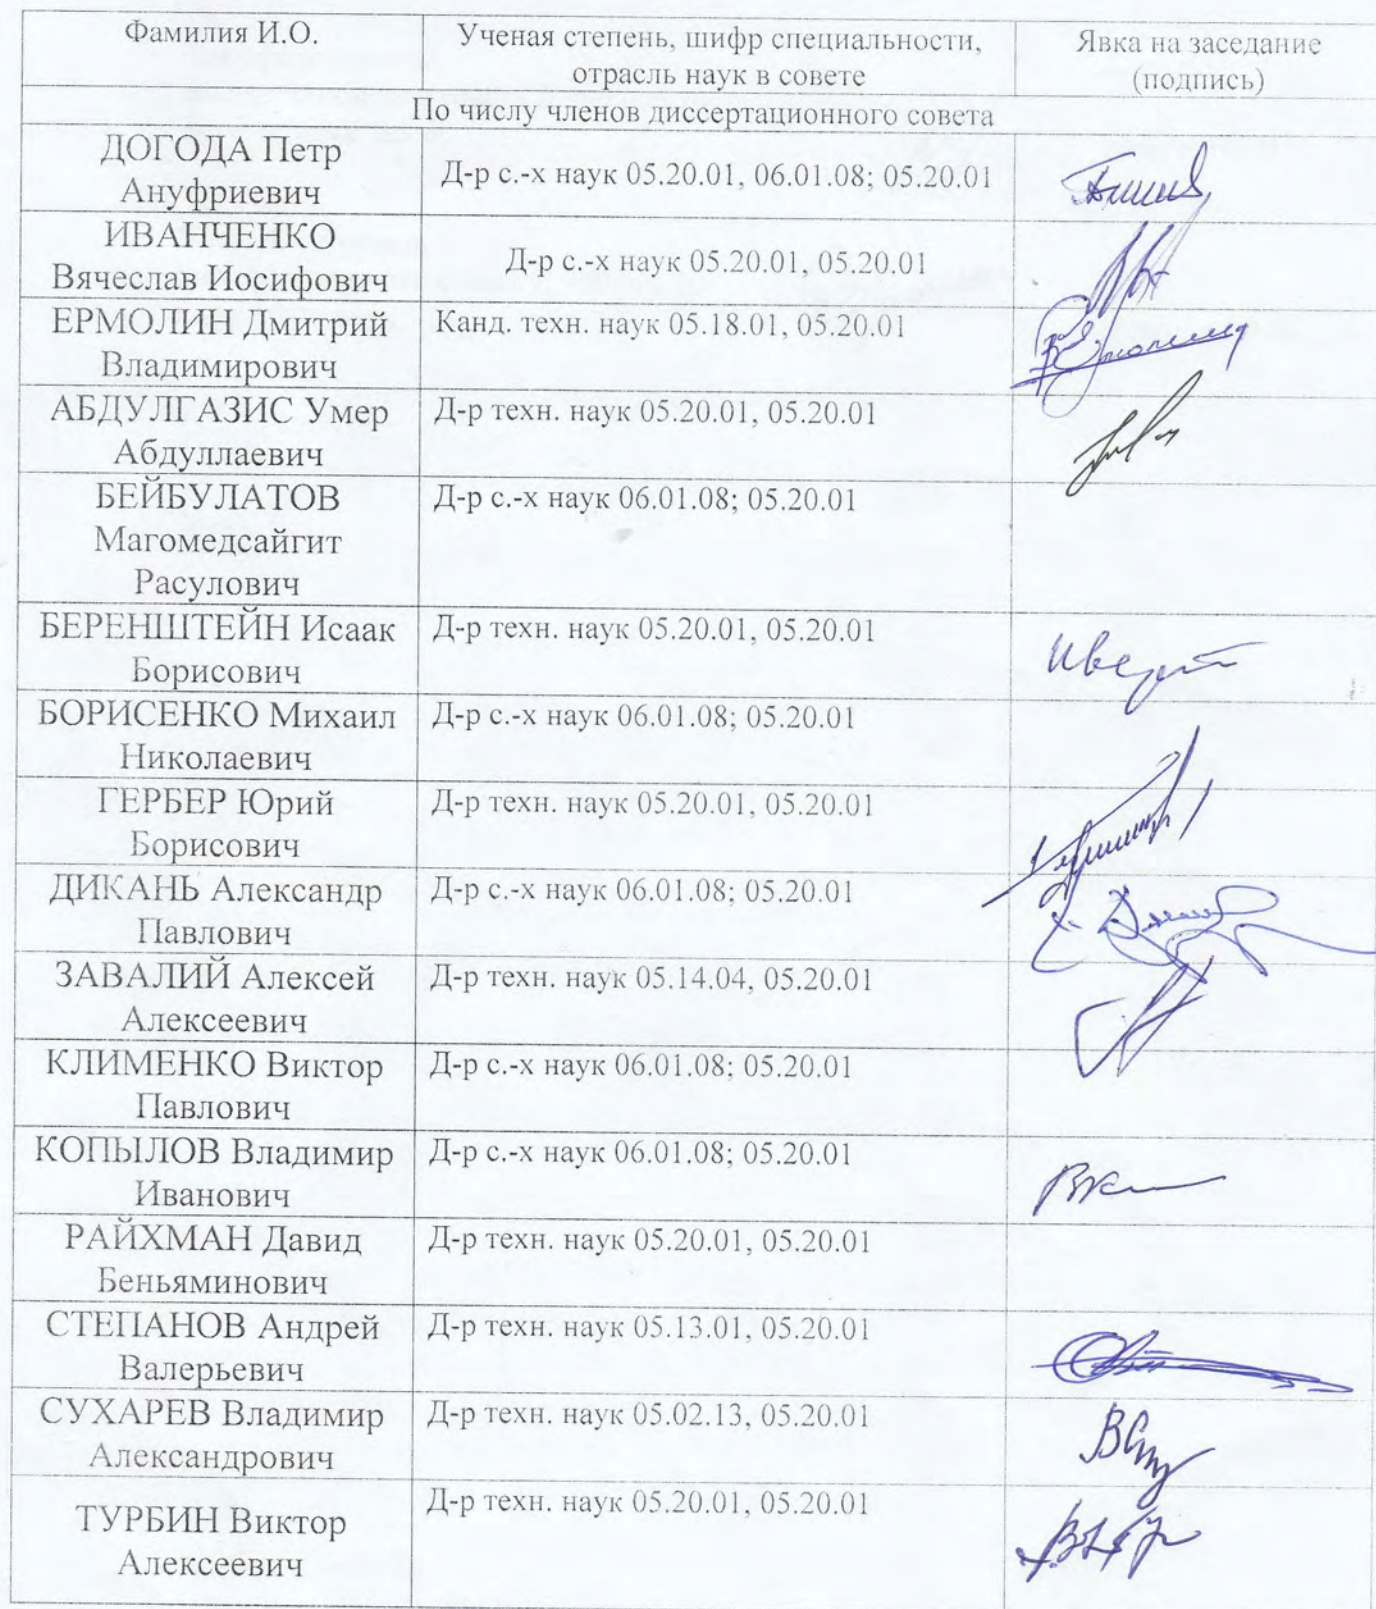 Фамилия И.О.
Ученая степень, шифр специальности,
отрасль наук в совете
Явка на заседание
(подпись)
По числу членов диссертационного совета
ДОГОДА Петр
Ануфриевич
Д-р с.-х наук 05.20.01, 06.01.08; 05.20.01
ИВАНЧЕНКО
Вячеслав Иосифович
Д-р с.-х наук 05.20.01, 05.20.01
ЕРМОЛИН Дмитрий
Владимирович
Канд. техн. наук 05.18.01, 05.20.01
АБДУЛГАЗИС Умер
Абдуллаевич
Д-р техн. наук 05.20.01, 05.20.01
БЕЙБУЛАТОВ
Магомедсайгит
Расулович
Д-р с.-х наук 06.01.08; 05.20.01
БЕРЕНШТЕЙН Исаак
Борисович
Д-р техн. наук 05.20.01, 05.20.01
БОРИСЕНКО Михаил
Николаевич
Д-р с.-х наук 06.01.08; 05.20.01
ГЕРБЕР Юрий
Борисович
Д-р техн. наук 05.20.01, 05.20.01
ДИКАНЬ Александр
Павлович
Д-р с.-х наук 06.01.08; 05.20.01
ЗАВАЛИЙ Алексей
Алексеевич
Д-р техн. наук 05.14.04, 05.20.01
КЛИМЕНКО Виктор
Павлович
Д-р с.-х наук 06.01.08; 05.20.01
КОПЫЛОВ Владимир
Иванович
Д-р с.-х наук 06.01.08; 05.20.01
РАЙХМАН Давид
Беньяминович
Д-р техн. наук 05.20.01, 05.20.01
СТЕПАНОВ Андрей
Валерьевич
Д-р техн. наук 05.13.01, 05.20.01
СУХАРЕВ Владимир
Александрович
Д-р техн. наук 05.02.13, 05.20.01
ТУРБИН Виктор
Алексеевич
Д-р техн. наук 05.20.01, 05.20.01